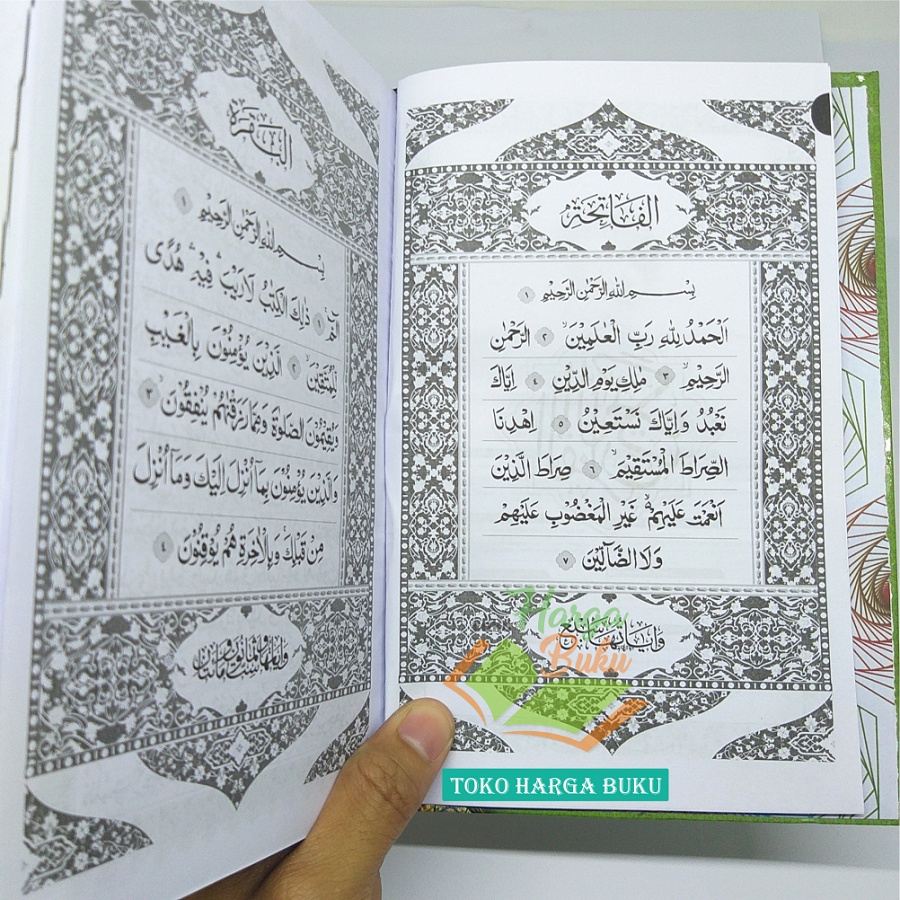 الفاتحة
بِسْمِ اللهِ الرَّحْمٰنِ الرَّحِيْمِ ١
اَلْحَمْدُ لِلّٰهِ رَبِّ الْعٰلَمِيْنَۙ ٢ الرَّحْمٰنِ
الرَّحِيْمِۙ ٣ مٰلِكِ يَوْمِ الدِّيْنِۗ ٤ اِيَّاكَ
نَعْبُدُ وَاِيَّاكَ نَسْتَعِيْنُۗ ٥ اِهْدِنَا
الصِّرَاطَ الْمُسْتَقِيْمَۙ ٦ صِرَاطَ الَّذِيْنَ
اَنْعَمْتَ عَلَيْهِمْ ەۙ غَيْرِ الْمَغْضُوْبِ عَلَيْهِمْ
وَلَا الضَّاۤلِّيْنَ ٧
وآياتها سبع
البقرة
بِسْمِ اللهِ الرَّحْمٰنِ الرَّحِيْمِ ١
الۤمّۤ ۚ ١ ذٰلِكَ الْكِتٰبُ لَا رَيْبَۛ فِيْهِۛ هُدًى
لِّلْمُتَّقِيْنَۙ ٢ الَّذِيْنَ يُؤْمِنُوْنَ بِالْغَيْبِ
وَيُقِيْمُوْنَ الصَّلٰوةَ وَمِمَّا رَزَقْنٰهُمْ يُنْفِقُوْنَۙ ٣
وَالَّذِيْنَ يُؤْمِنُوْنَ بِمَآ اُنْزِلَ اِلَيْكَ وَمَآ اُنْزِلَ
مِنْ قَبْلِكَۚ وَبِالْاٰخِرَةِ هُمْ يُوْقِنُوْنَۗ ٤
Harga
Buku
TOKO HARGA BUKU